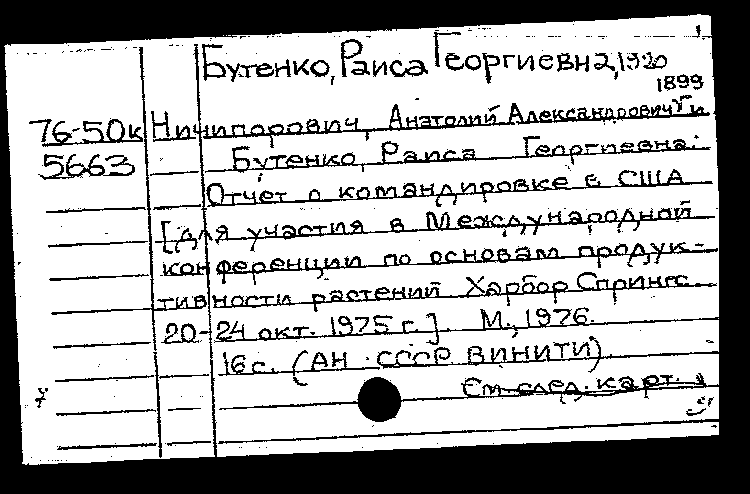 Бутенко, Раиса Георгиевна, 1920
1899
76-50к Ничипорович, Анатолий Александрович и
5663 Бутенко, Раиса Георгиевна:
Отчет о командировке в США
[для участия в Международной
конференции по основам продук-
тивности растений Харбор Спрингс
20-24 окт. 1975 г.]. М., 1976.
16 с. (АН СССР ВИНИТИ)
См след. карт.